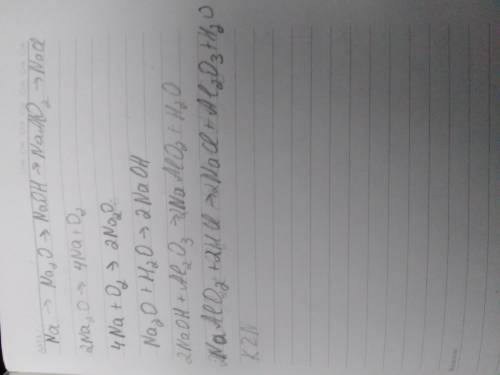 Na → Na₂O → NaOH → NaAlO₂ → NaCl
2Na₂O → 4Na + O₂
4Na + O₂ → 2Na₂O
Na₂O + H₂O → 2NaOH
2NaOH + Al₂O₃ → 2NaAlO₂ + H₂O
2NaAlO₂ + 2HCl → 2NaCl + Al₂O₃ + H₂O